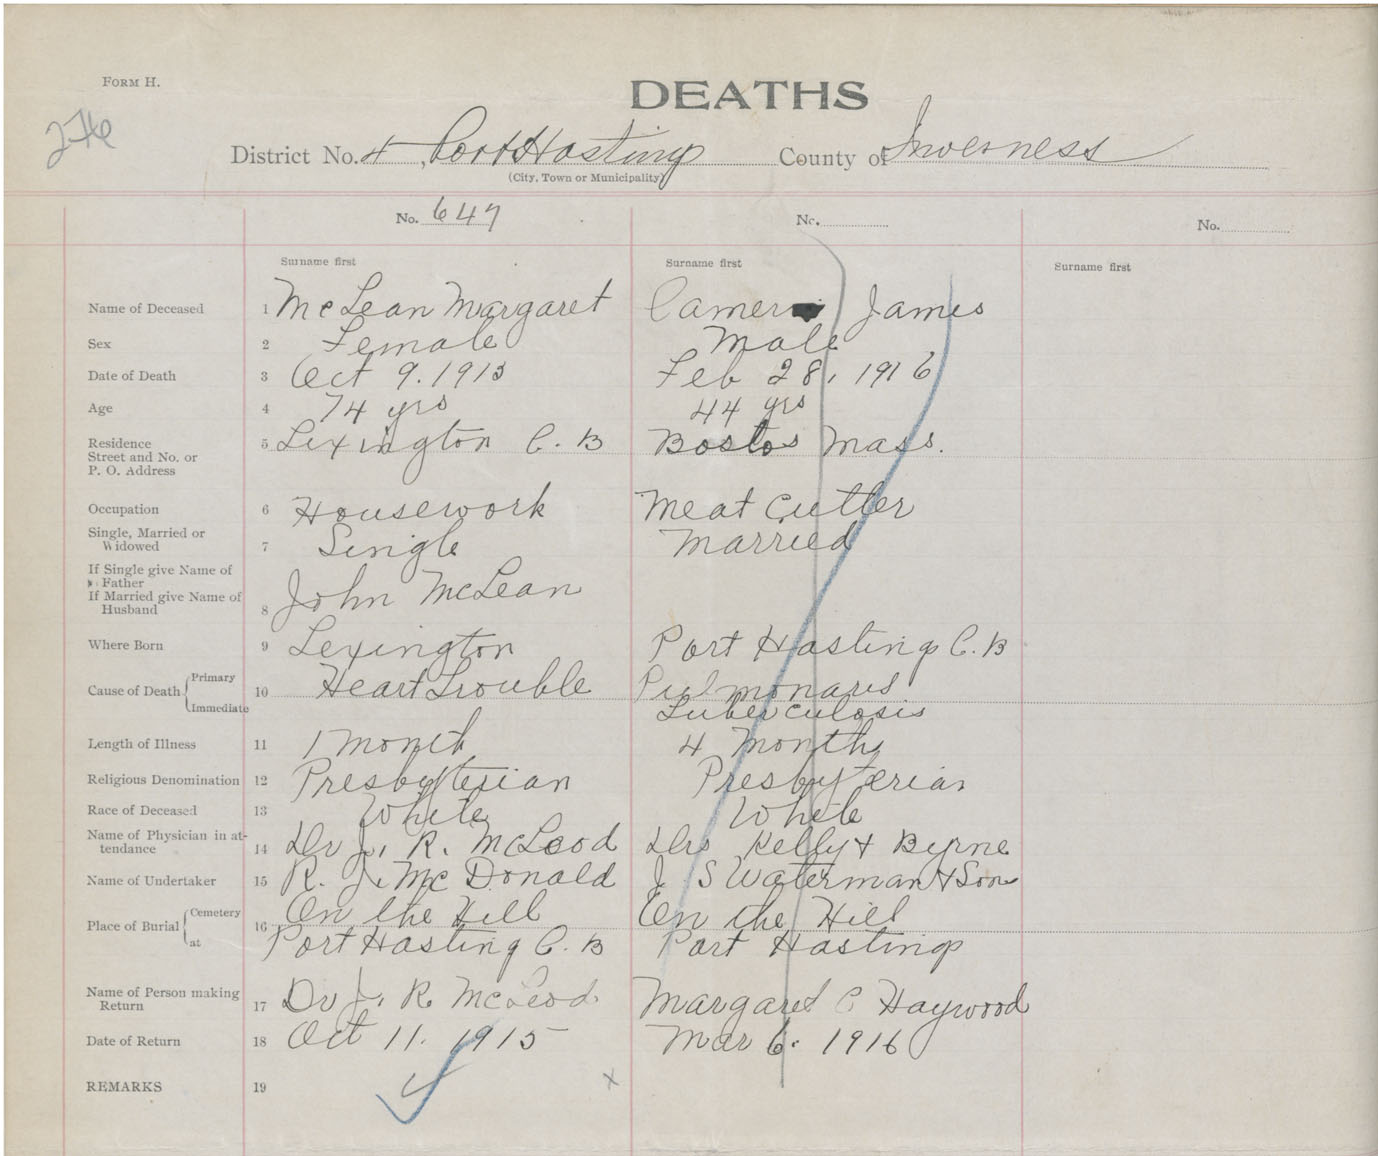 FORM H.
DEATHS
District No. 4, Port Hasting County of Inverness
(City, Town or Municipality)
No. 647 No. No.
Surname first Surname first Surname first
Name of Deceased 1 McLean Margaret James
Sex 2 Female Male
Date of Death 3 Oct 9. 1915 Feb 28, 1916
Age 4 74 yrs 44 yrs
Residence 5 Lexington C. B Boston Mass.
Street and No. or
P. O. Address
Occupation 6 Housework Meat Cutter
Single, Married or
Widowed 7 Single Married
If Single give Name of
Father
If Married give Name of
Husband 8 John McLean
Where Born 9 Lexington Port Hasting C. B
Cause of Death Primary 10 Heart Trouble Pulmonary
Immediate Tuberculosis
Length of Illness 11 1 month 4 months
Religious Denomination 12 Presbyterian Presbyterian
Race of Deceased 13 White White
Name of Physician in at-
tendance 14 Dr J. R. McLeod Drs Kelly & Byrne
Name of Undertaker 15 R. J. McDonald J S Waterman & Son
Place of Burial Cemetery 16 On the Hill On the Hill
at Port Hasting C. B Port Hasting
Name of Person making
Return 17 Dr J. R. McLeod Margaret C Haywood
Date of Return 18 Oct 11. 1915 Mar 6. 1916
REMARKS 19 x